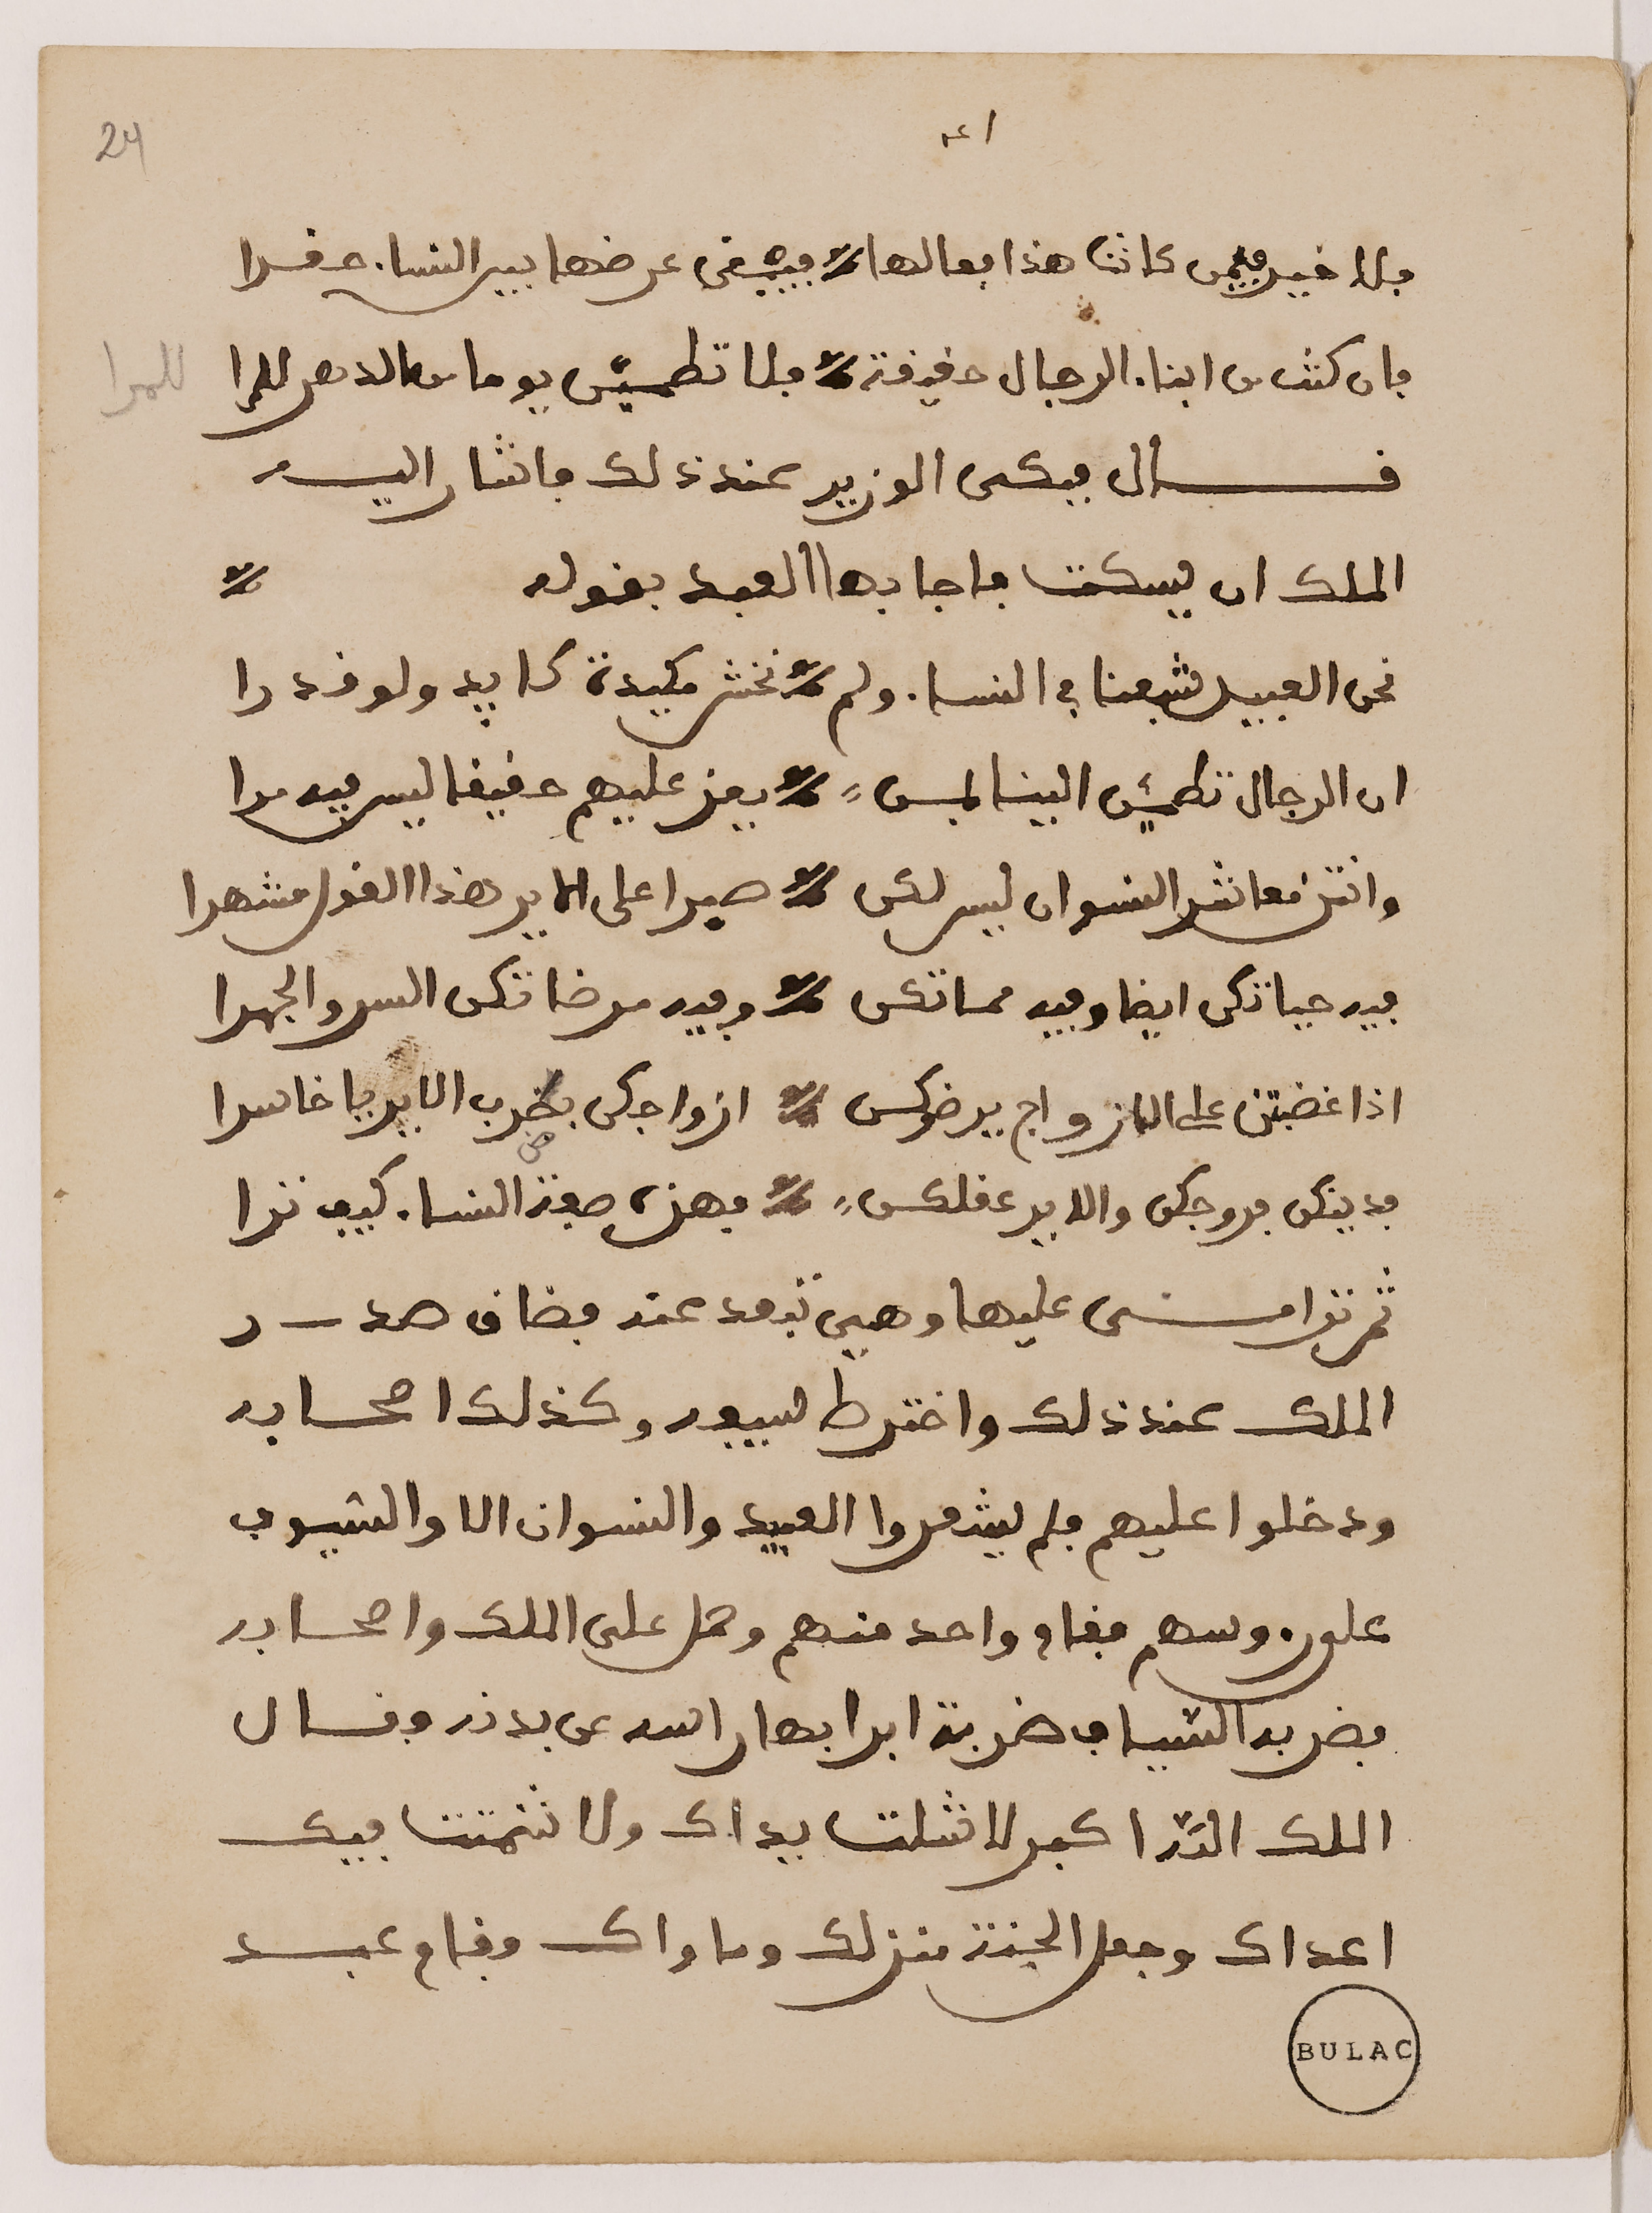 24
فلا خير فيمن كانت هذا فعالها فيبقى عرضها بين النساء حقرا
فان كنت من ابناء الرجال حقيقة فلا تطمئن يوما من الدهر للمرا
للمرا
قال فبكى الوزير عند ذلك فاشار اليه
الملك ان يسكت فاجابها العبد بقوله
نحن العبيد شبعنا في النساء ولم نخش مكيدة كايد ولو قدرا
ان الرجال تطمئن الينا لمن يعز عليهم حقيقا ليس فيه مرا
وانتن معاشر النسوان ليس لكن صبرا على الاير هذا القول مشهرا
فيه حياتكن ايضا وفيه مماتكن وفيه مرضاتكن السر والجهرا
اذا غضبتن على الازواج يرضوكن ازواجكن بضرب الاير يا خاسرا
ض
فدينكن فروجكن والاير عقلكن فهذه صفة النساء كيف ترا
ثم ترامى عليها وهي تبعد عنه فضاق صدر
الملك عند ذلك واخترط سيفه وكذلك اصحابه
ودخلوا عليهم فلم يشعروا العبيد والنسوان الا والسيوف
على روسهم فقام واحد منهم وحمل على الملك واصحابه
فضربه السياف ضربة ابرا بها راسه عن بدنه وقال
الملك الله اكبر لا شلت يداك ولا شمتت بيك
اعداك وجعل الجنة منزلك وماواك وقام عبد
BULAC